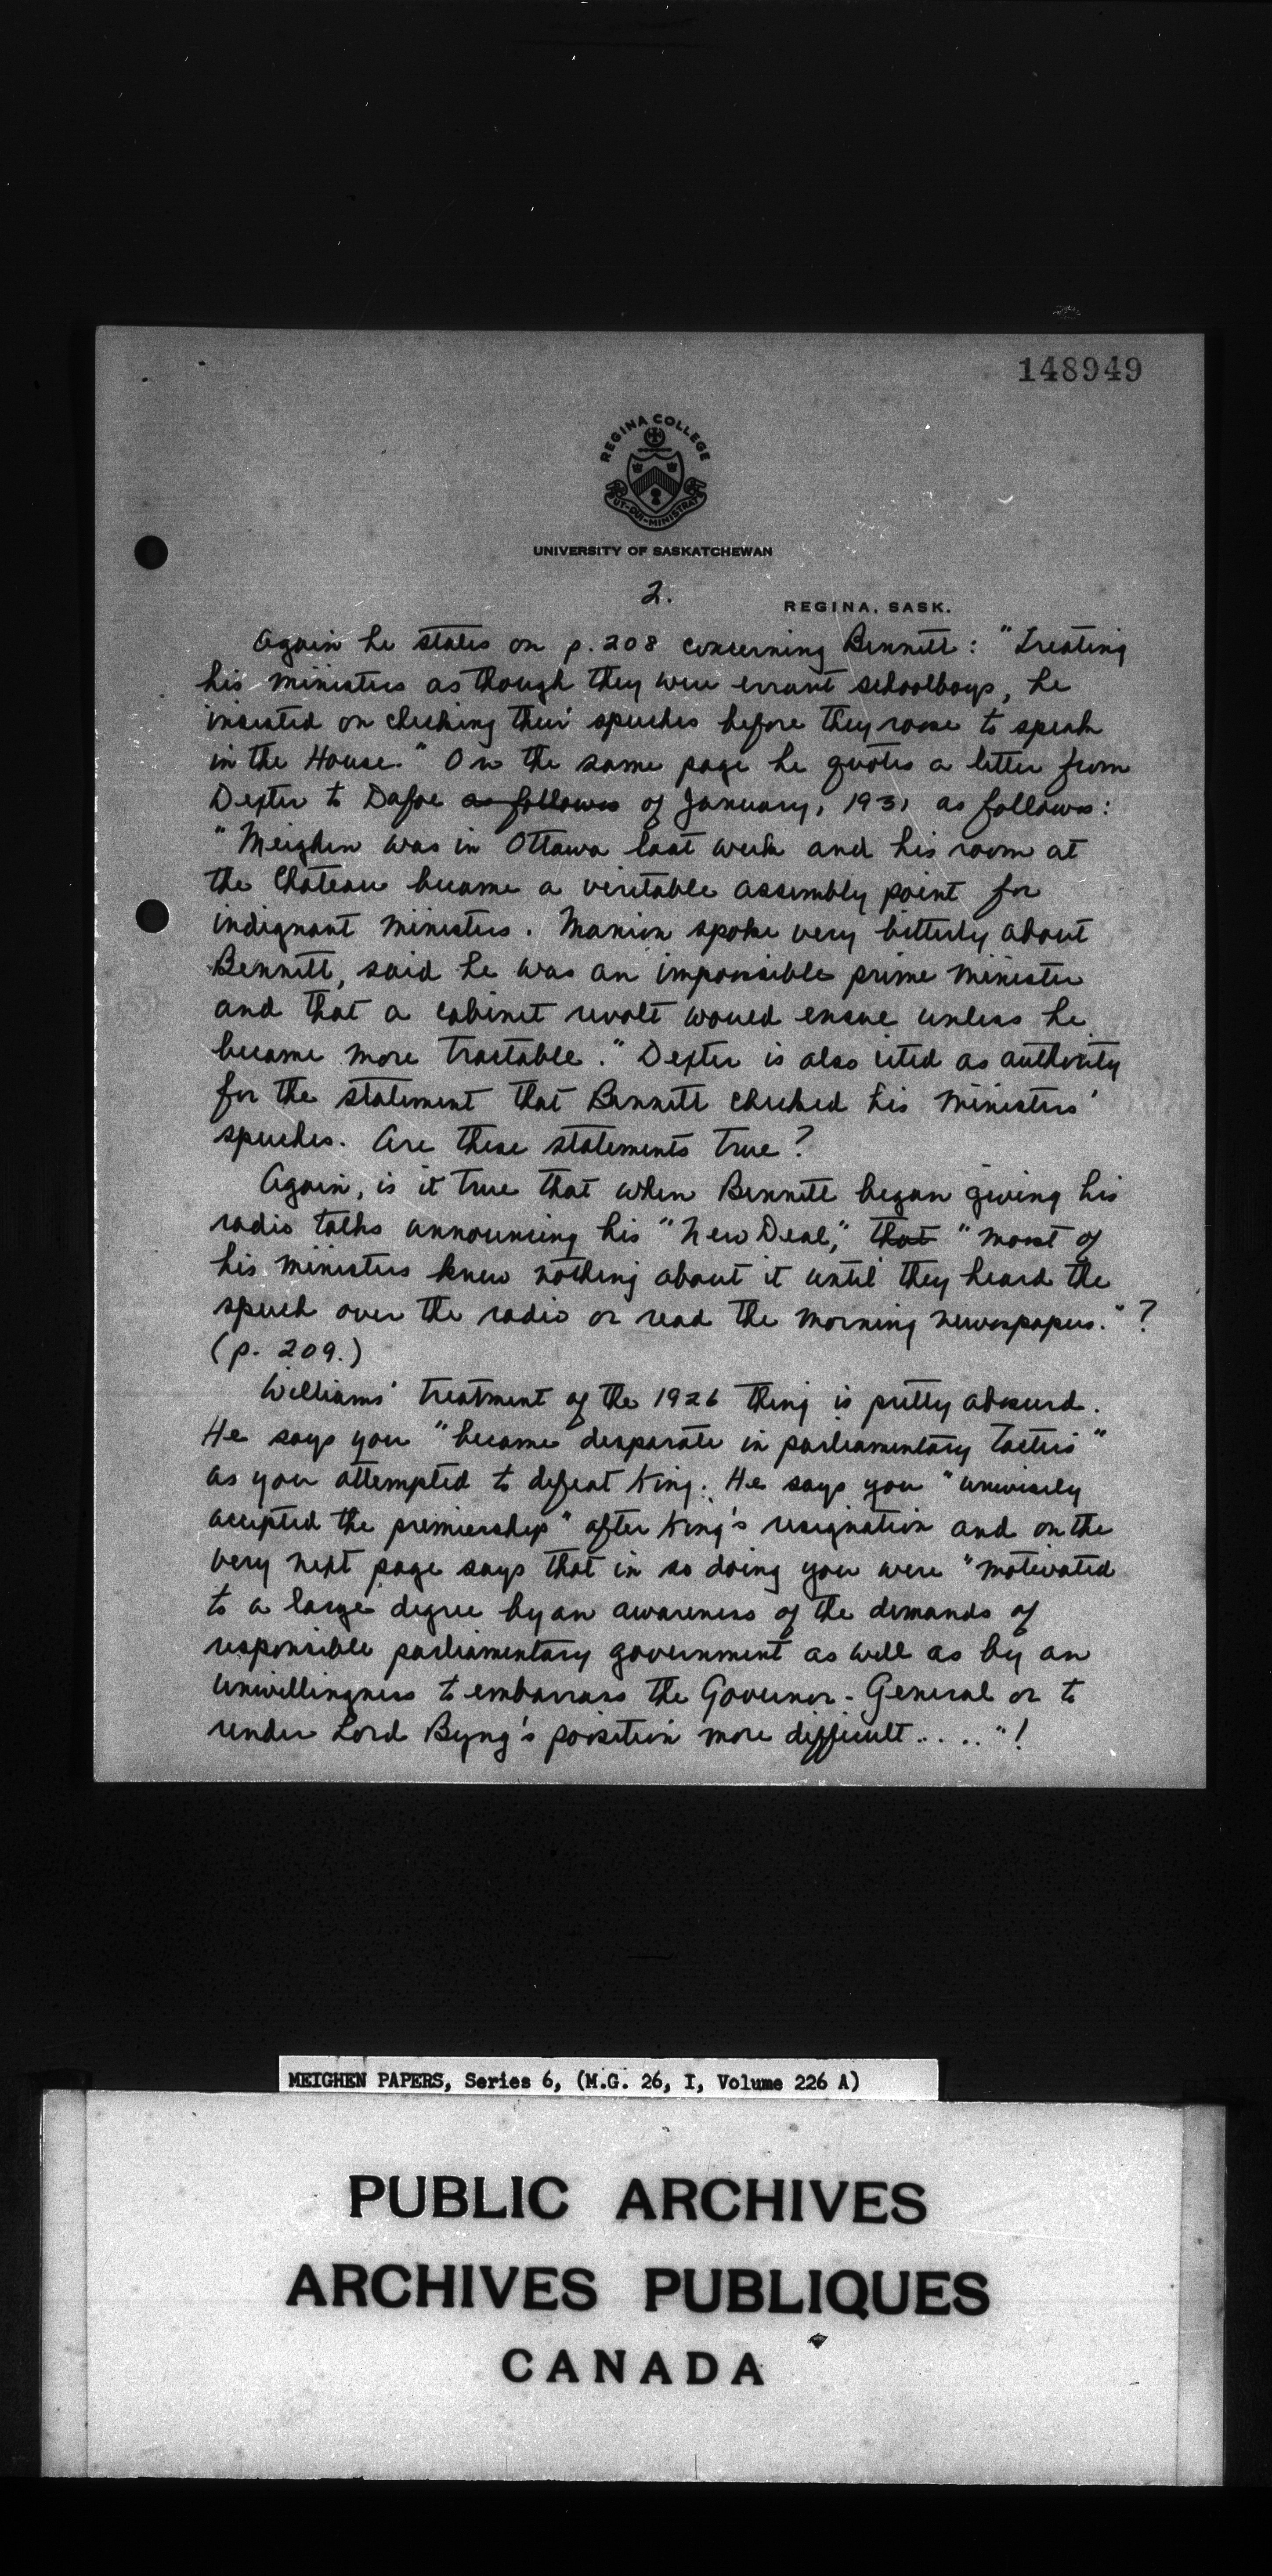 148949
REGINA COLLEGE
UT·QUI·MINISTRAT
UNIVERSITY OF SASKATCHEWAN
2.
REGINA, SASK.
Again he states on p. 208 concerning Bennett: "Treating
his ministers as though they were errant schoolboys, he
insisted on checking their speeches before they rose to speak
in the House." On the same page he quotes a letter from
Dexter to Dafoe as follows of January, 1931 as follows:
"Meighen was in Ottawa last week and his room at
the Chateau became a veritable assembly point for
indignant ministers. Manion spoke very bitterly about
Bennett, said he was an impossible prime minister
and that a cabinet revolt would ensue unless he
became more tractable." Dexter is also cited as authority
for the statement that Bennett checked his ministers'
speeches. Are these statements true?
Again, is it true that when Bennett began giving his
radio talks announcing his "New Deal," that "most of
his ministers knew nothing about it until they heard the
speech over the radio or read the morning newspapers."?
(p. 209.)
Williams' treatment of the 1926 thing is pretty absurd.
He says you "became desparate in parliamentary tactics"
as you attempted to defeat King. He says you "unwisely
accepted the premiership" after King's resignation and on the
very next page says that in so doing you were "motivated
to a large degree by an awareness of the demands of
responsible parliamentary government as well as by an
unwillingness to embarrass the Governor-General or to
render Lord Byng's position more difficult....."!
MEIGHEN PAPERS, Series 6, (M.G. 26, I, Volume 226 A)
PUBLIC ARCHIVES
ARCHIVES PUBLIQUES
CANADA